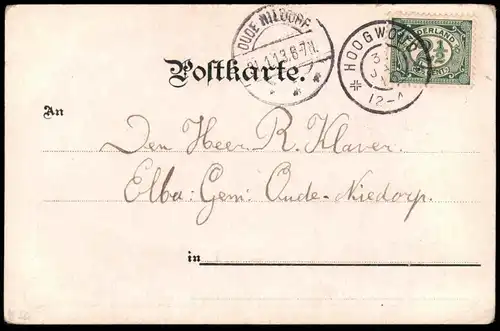 OUDE NIEDORP
HOOGWOUD
12-4
NEDERLAND
2½
CENT
Postkarte.
An
Den Heer R. Klaver.
Elba: Gem: Oude-Niedorp.
in